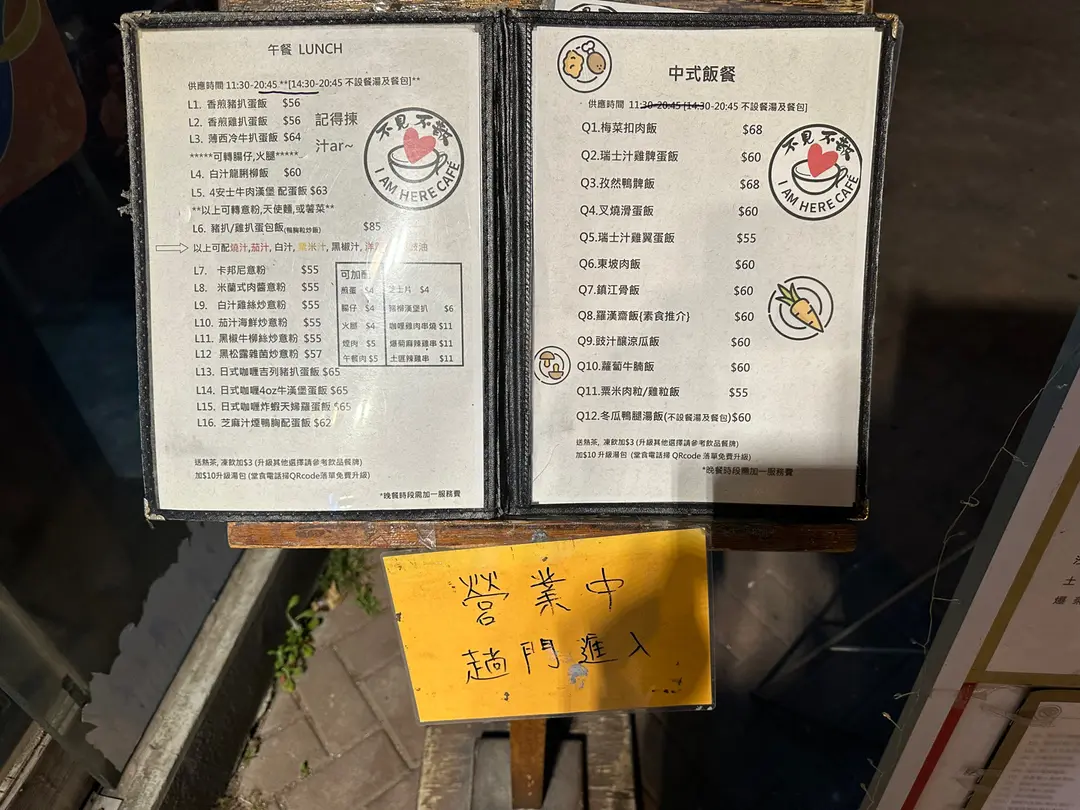 午餐 LUNCH
供應時間 11:30-20:45 **[14:30-20:45 不設餐湯及餐包]**
L1. 香煎豬扒蛋飯 $56
L2. 香煎雞扒蛋飯 $56
L3. 薄西冷牛扒蛋飯 $64
記得揀
汁ar~
*****可轉腸仔,火腿*****
L4. 白汁龍脷柳飯 $60
L5. 4安士牛肉漢堡 配蛋飯 $63
**以上可轉意粉,天使麵,或薯菜**
L6. 豬扒/雞扒蛋包飯(鴨胸粒炒飯) $85
以上可配燒汁,茄汁, 白汁, 粟米汁, 黑椒汁,
L7. 卡邦尼意粉 $55
L8. 米蘭式肉醬意粉 $55
L9. 白汁雞絲炒意粉 $55
L10. 茄汁海鮮炒意粉 $55
L11. 黑椒牛柳絲炒意粉 $55
L12 黑松露雜菌炒意粉 $57
L13. 日式咖喱吉列豬扒蛋飯 $65
L14. 日式咖喱4oz牛漢堡蛋飯 $65
L15. 日式咖喱炸蝦天婦羅蛋飯 $65
L16. 芝麻汁煙鴨胸配蛋飯 $62
可加配
煎蛋 $4 芝士片 $4
腸仔 $4 豬柳漢堡扒 $6
火腿 $4 咖喱雞肉串燒 $11
煙肉 $5 爆菊麻辣雞串 $11
午餐肉 $5 土匪辣雞串 $11
送熱茶, 凍飲加$3 (升級其他選擇請參考飲品餐牌)
加$10升級湯包 (堂食電話掃QRcode落單免費升級)
*晚餐時段需加一服務費
不見不散
I AM HERE CAFÉ
中式飯餐
供應時間 11:30-20:45 [14:30-20:45 不設餐湯及餐包]
Q1.梅菜扣肉飯 $68
Q2.瑞士汁雞髀蛋飯 $60
Q3.孜然鴨髀飯 $68
Q4.叉燒滑蛋飯 $60
Q5.瑞士汁雞翼蛋飯 $55
Q6.東坡肉飯 $60
Q7.鎮江骨飯 $60
Q8.羅漢齋飯{素食推介} $60
Q9.豉汁釀涼瓜飯 $60
Q10.蘿蔔牛腩飯 $60
Q11.粟米肉粒/雞粒飯 $55
Q12.冬瓜鴨腿湯飯(不設餐湯及餐包)$60
送熱茶, 凍飲加$3 (升級其他選擇請參考飲品餐牌)
加$10 升級湯包 (堂食電話掃 QRcode 落單免費升級)
*晚餐時段需加一服務費
不見不散
I AM HERE CAFÉ
營業中
趟門進入